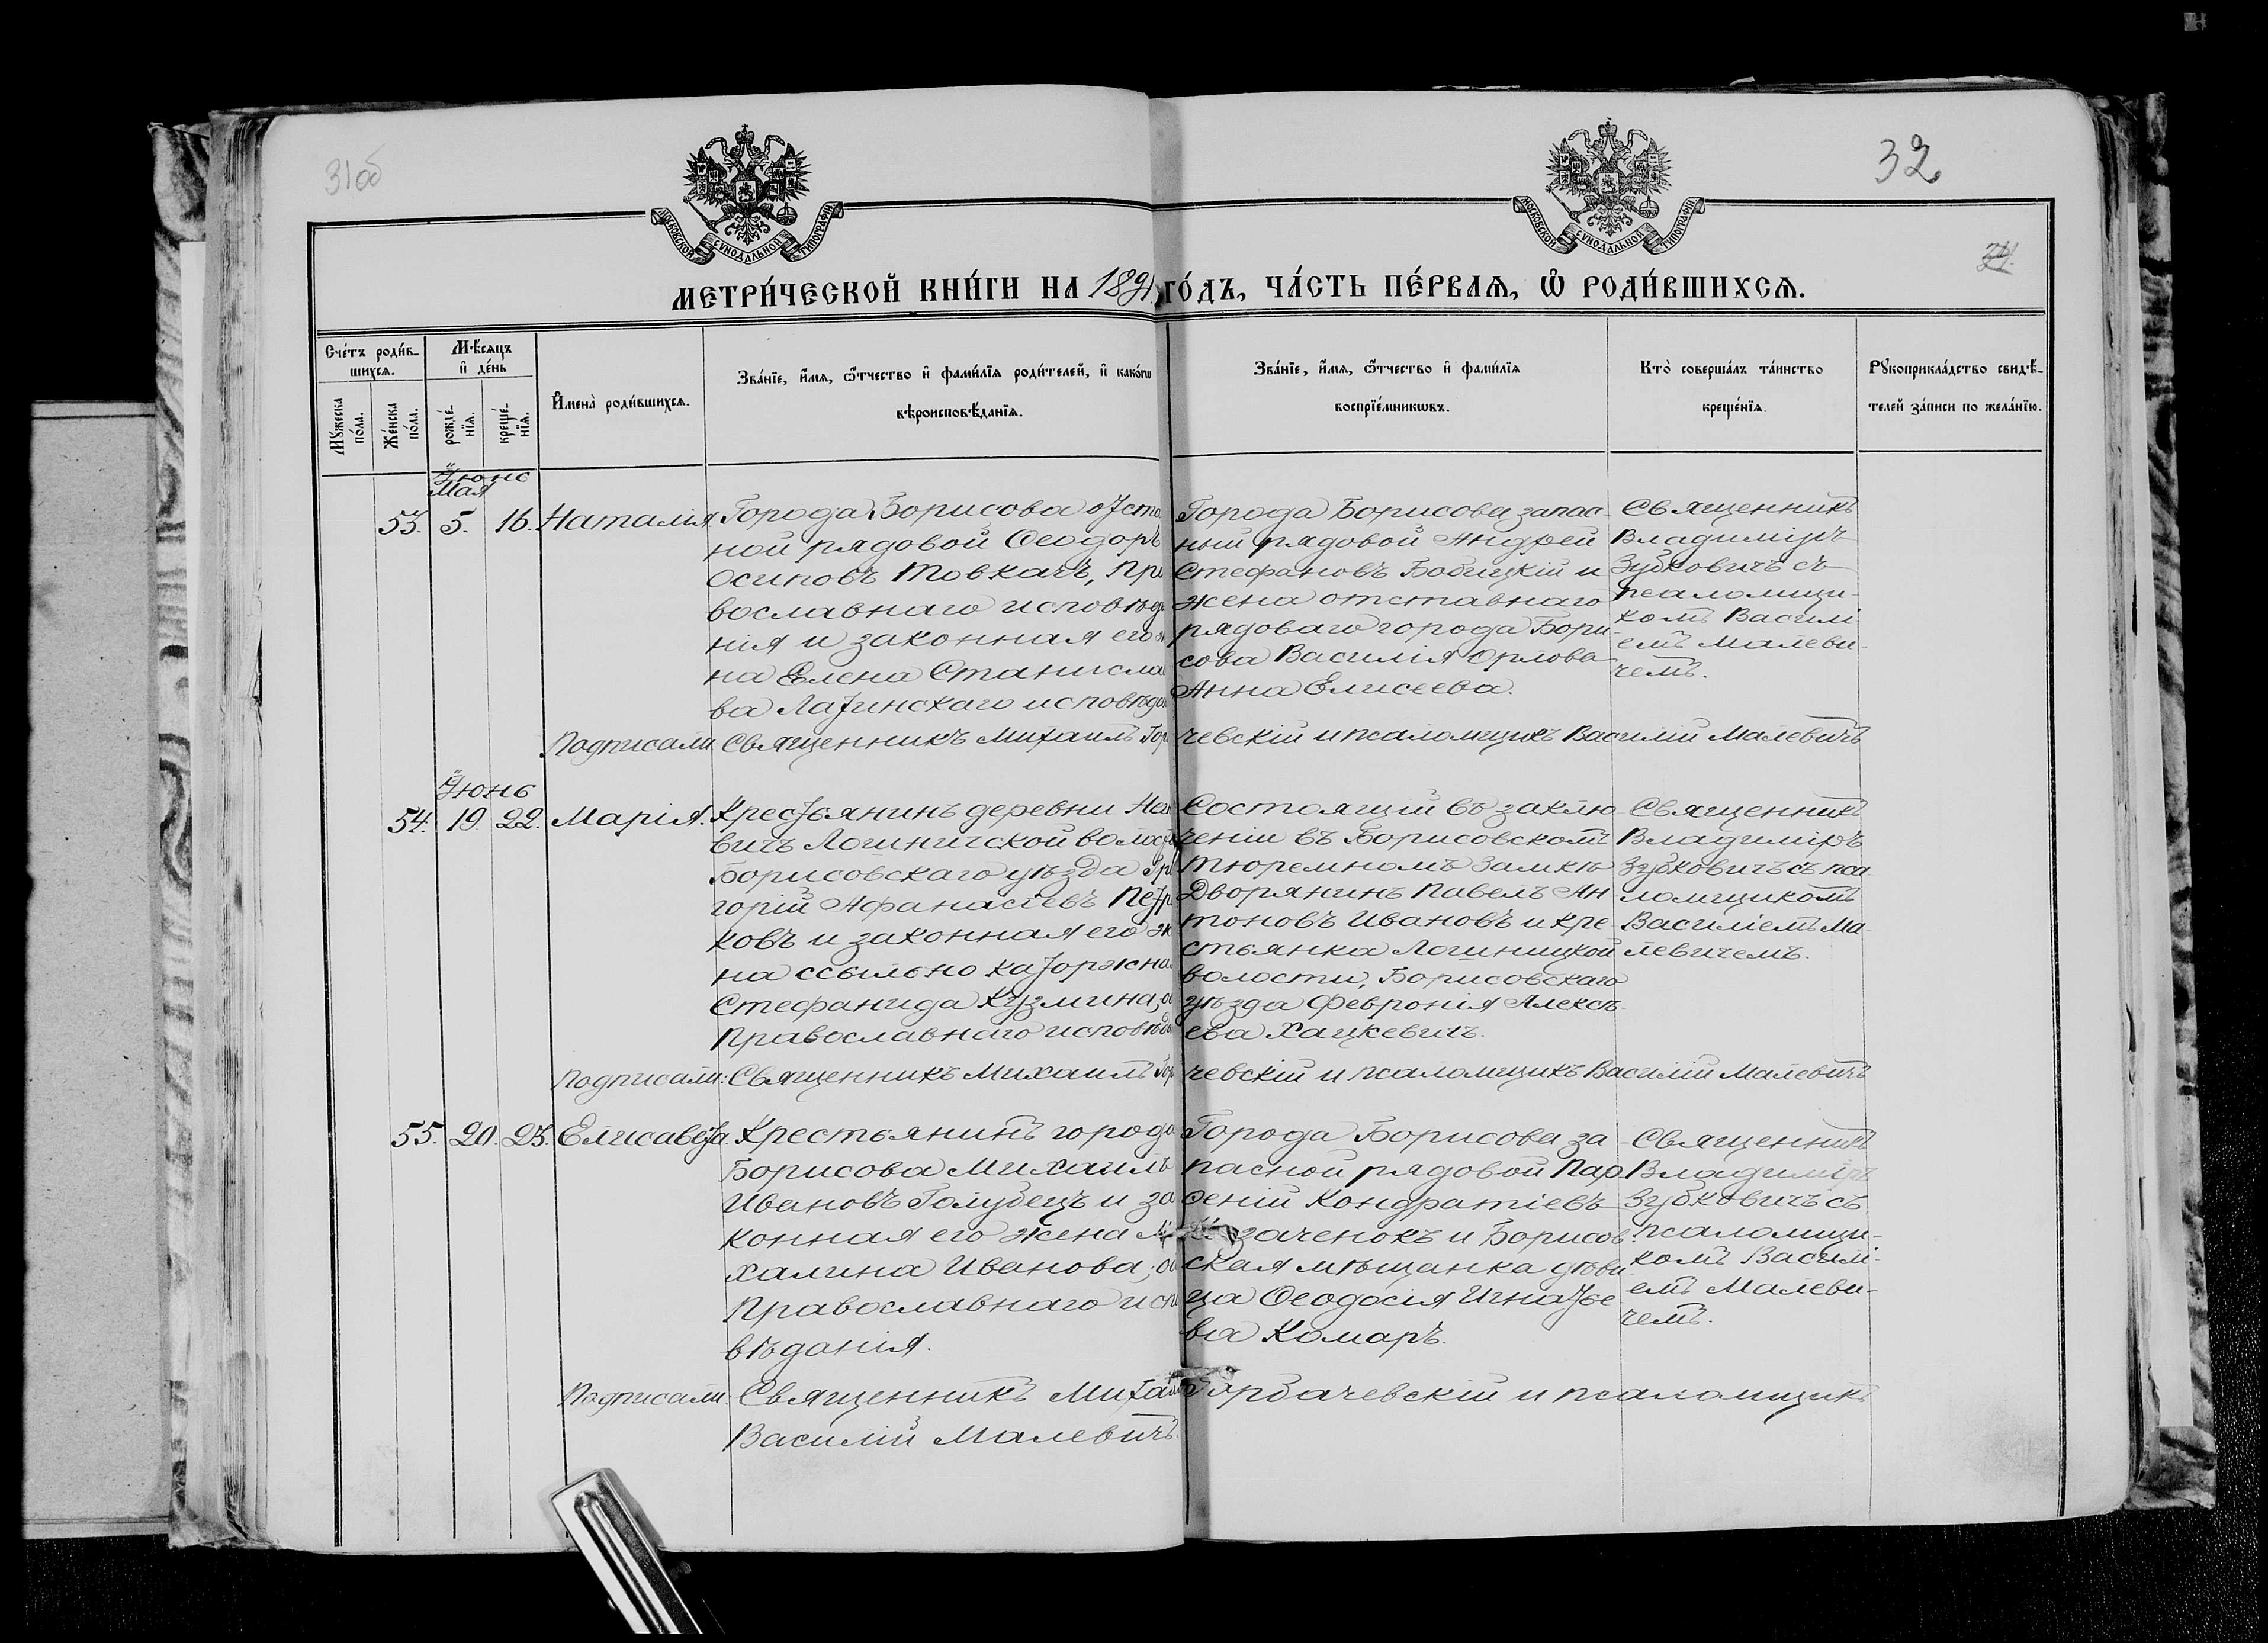 31об
32
МОСКОВСКОЙ СУНОДАЛЬНОЙ ТИПОГРАФІИ
МОСКОВСКОЙ СУНОДАЛЬНОЙ ТИПОГРАФІИ
МЕТРИ́ЧЕСКОЙ КНИ́ГИ НА 1891 ГО́ДЪ, ЧА́СТЬ ПЕ́РВАѦ, Ѡ҆ РОДИ́ВШИХСѦ.
Сче́тъ роди́в-
шихсѧ.
Мꙋ́жеска по́ла.
Же́нска по́ла.
Мѣ́сѧцъ
и҆ де́нь
рожде́-нїѧ.
креще́-нїѧ.
И҆мена̀ роди́вшихсѧ.
Зва́нїе, и҆́мѧ, ѻ҆́тчество и҆ фами́лїѧ роди́телей, и҆ како́гѡ
вѣроисповѣ́данїѧ.
Зва́нїе, и҆́мѧ, ѻ҆́тчество и҆ фами́лїѧ
воспрїе́мникѡвъ.
Кто̀ соверша́лъ та́инство
креще́нїѧ.
Рꙋкоприкла́дство свидѣ́-
телей за́писи по жела́нїю.
Іюнь
Мая
53. 5. 16. Наталія.
Города Борисова отста
ной рядовой Ѳеодоръ
Осиповъ Товкачъ, Пра
вославнаго исповѣда
нія и законная его ж
на Елена Станисла
ва Латинскаго исповѣда
Города Борисова запас
ный рядовой Андрей
Стефановъ Бобицкій и
жена отставнаго
рядоваго города Бори
сова Василія Орлова
Анна Елисеева.
Священникъ
Владиміръ
Зубковичъ съ
псаломщи-
комъ Василі
емъ Малеви-
чемъ.
Подписали Священникъ Михаилъ Гор чевскій и псаломщикъ Василій Малевичъ
Іюнь
54. 19. 22. Марія.
Крестьянинъ деревни
вичъ Логиничской волост
Борисовскаго уѣзда Гри
горій Афанасіевъ Петр
ковъ и законная его ж
на ссыльно каторжна
Стефанида Кузмина, о
Православнаго исповѣда
Состоящій въ заклю
ченіи въ Борисовскомъ
тюремномъ Замкѣ
Дворянинъ Павелъ Ан
тоновъ Ивановъ и кре
стьянка Логиницкой
волости, Борисовскаго
уѣзда Февронія Алексѣ
ева Хацкевичъ.
Священникъ
Владиміръ
Зубковичъ съ пса
ломщикомъ
Василіемъ Ма-
левичемъ.
Подписали: Священникъ Михаилъ Гор чевскій и псаломщикъ Василій Малевичъ
55. 20. 23. Елисавета.
Крестьянинъ города
Борисова Михаилъ
Ивановъ Голубецъ и за
конная его жена Ми
халина Иванова; об
Православнаго испо
вѣданія.
Города Борисова за
пасной рядовой Пар
ѳеній Кондратіевъ
заченокъ и Борисов
ская мѣщанка дѣви
ца Ѳеодосія Игнатье
ва Комаръ.
Священникъ
Владиміръ
Зубковичъ съ
псаломщи-
комъ Василі-
емъ Малеви-
чемъ.
Подписали Священникъ Михаилъ Горбачевскій и псаломщикъ
Василій Малевичъ.